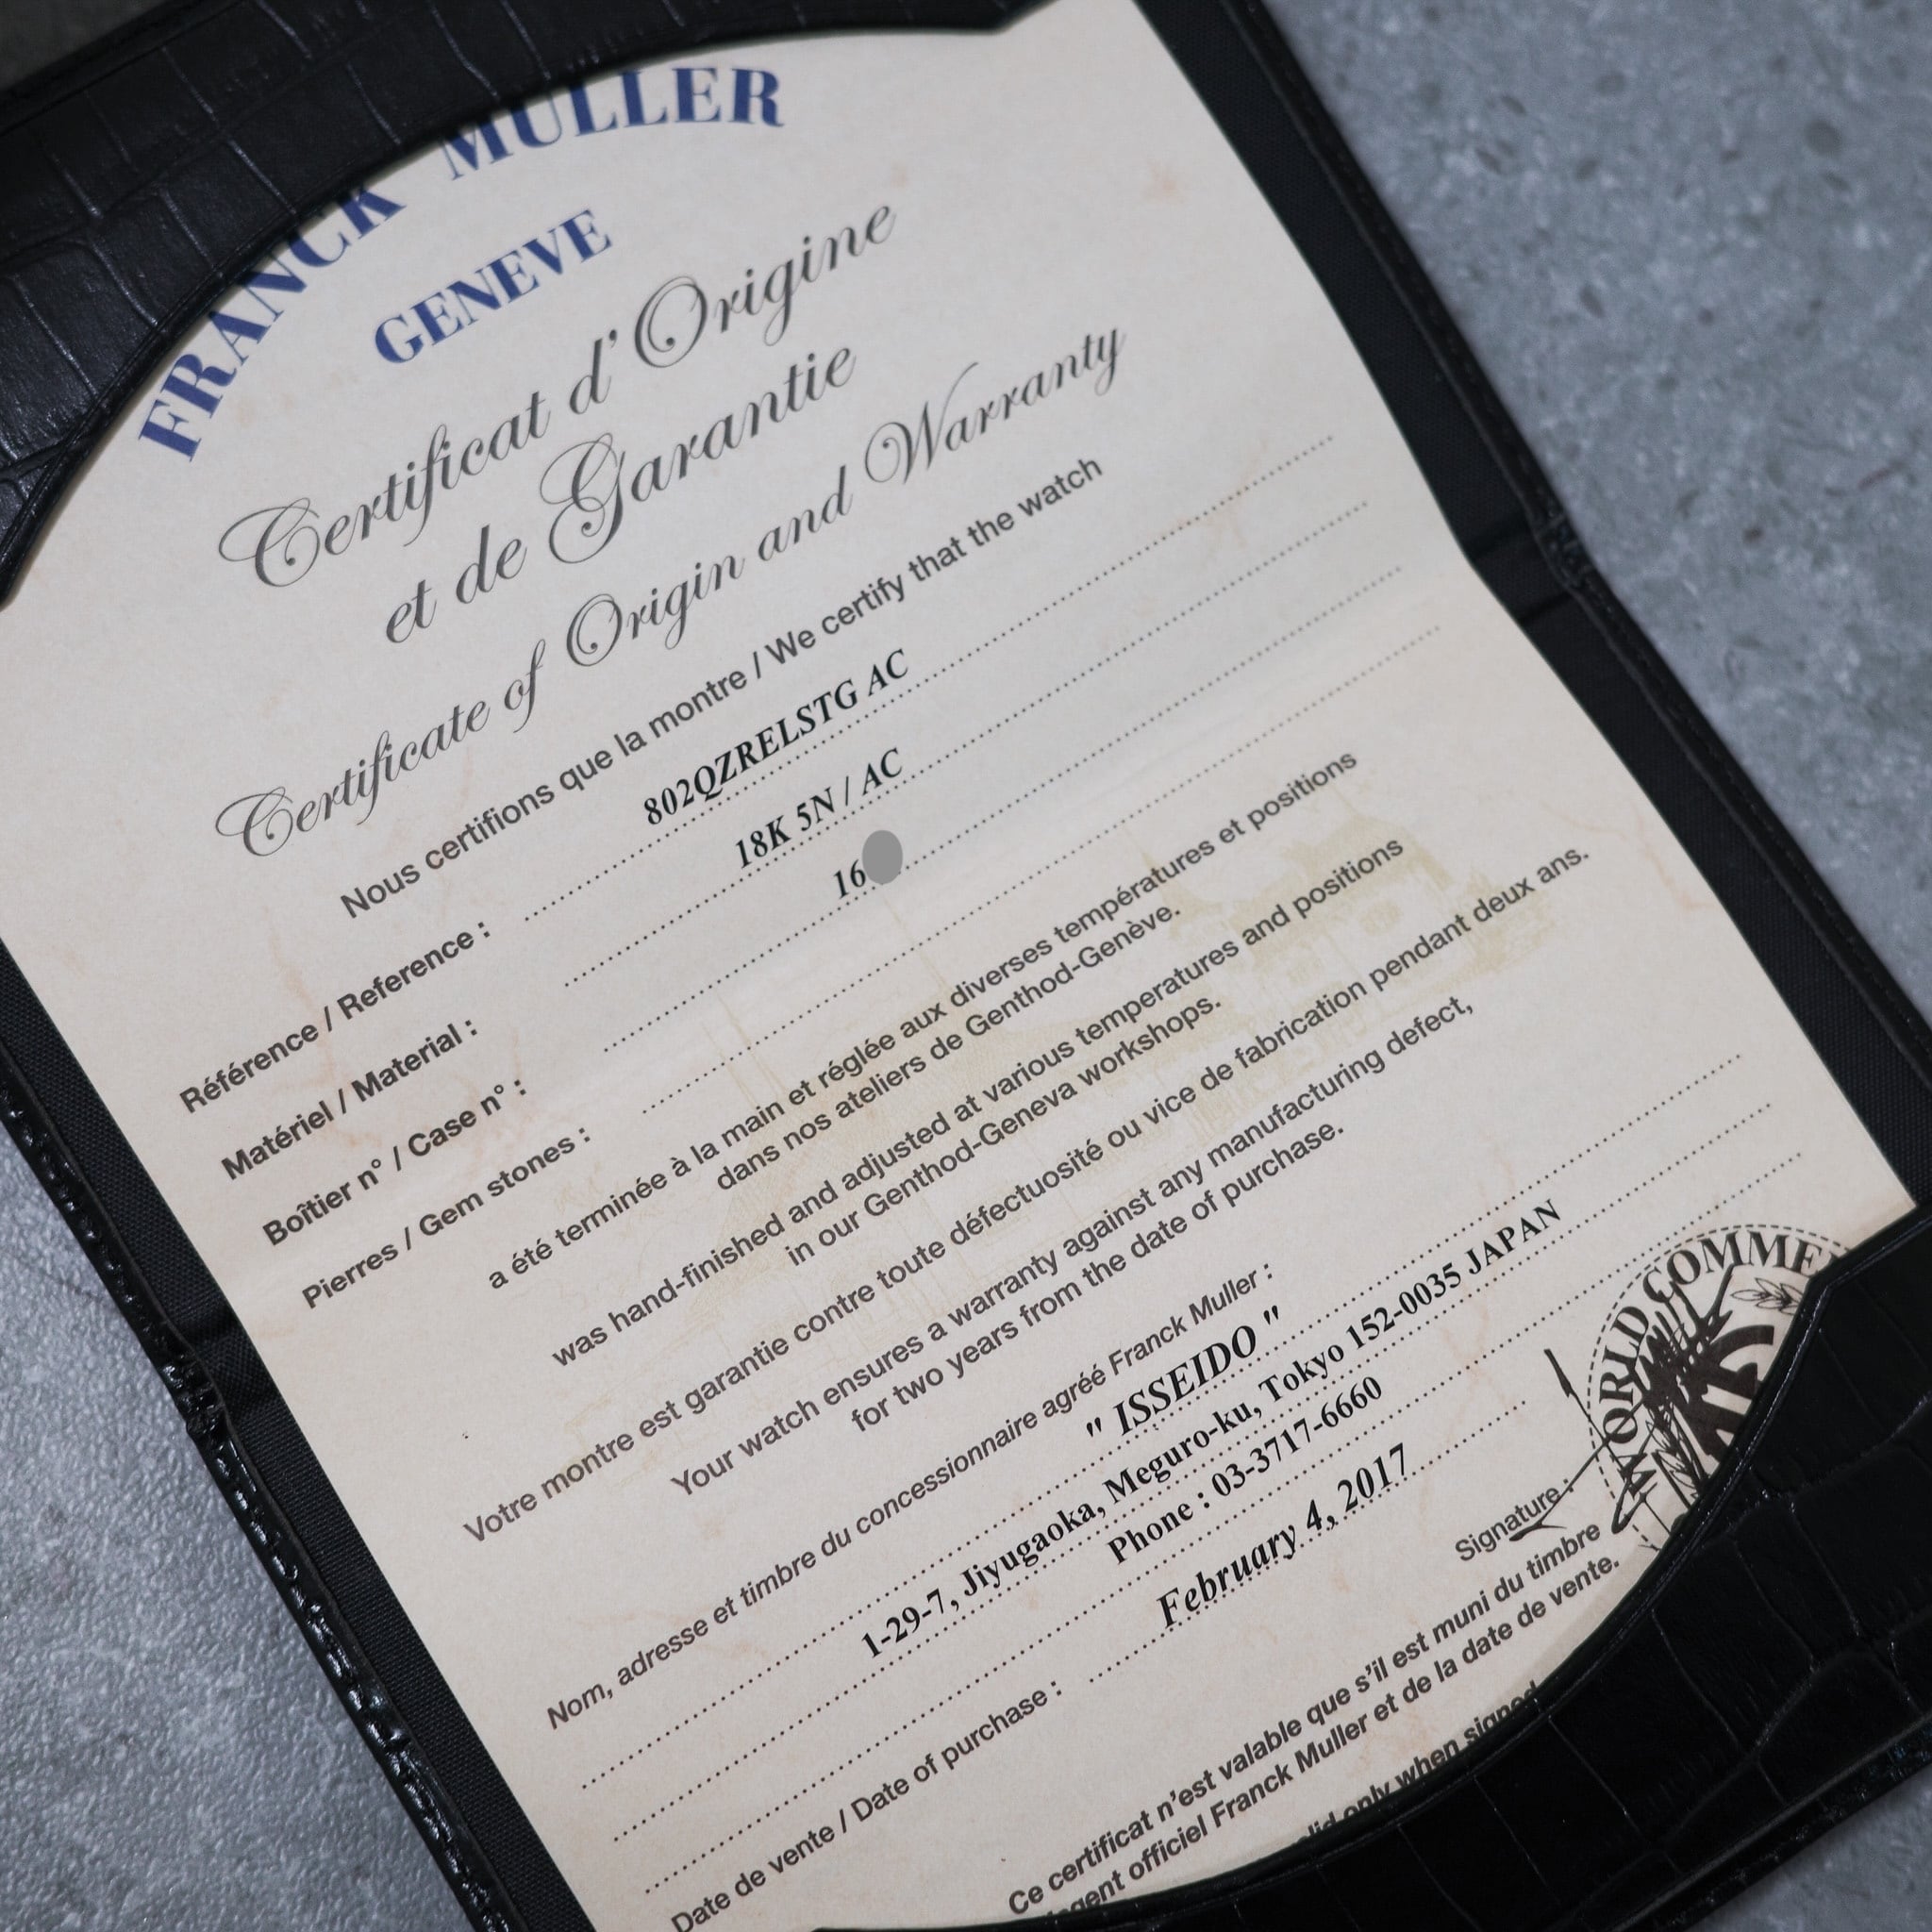 FRANCK MULLER
GENEVE
Certificat d'Origine
et de Garantie
Certificate of Origin and Warranty
Nous certifions que la montre / We certify that the watch
Référence / Reference : 802QZRELSTG AC
Matériel / Material : 18K 5N / AC
Boîtier n° / Case n° : 16
Pierres / Gem stones :
a été terminée à la main et réglée aux diverses températures et positions
dans nos ateliers de Genthod-Genève.
was hand-finished and adjusted at various temperatures and positions
in our Genthod-Geneva workshops.
Votre montre est garantie contre toute défectuosité ou vice de fabrication pendant deux ans.
Your watch ensures a warranty against any manufacturing defect,
for two years from the date of purchase.
Nom, adresse et timbre du concessionnaire agréé Franck Muller :
" ISSEIDO "
1-29-7, Jiyugaoka, Meguro-ku, Tokyo 152-0035 JAPAN
Phone : 03-3717-6660
Date de vente / Date of purchase : February 4, 2017
Signature :
WORLD COMME
Ce certificat n'est valable que s'il est muni du timbre
agent officiel Franck Muller et de la date de vente.
only when signed